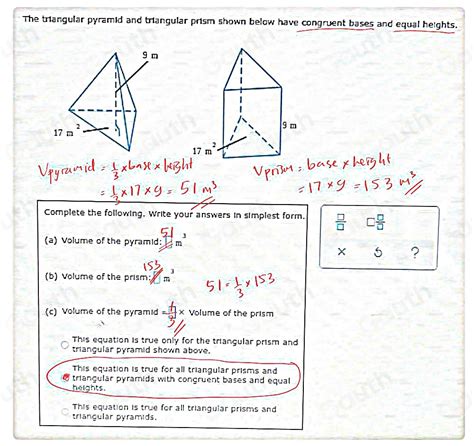 The triangular pyramid and triangular prism shown below have congruent bases and equal heights.
9 m
17 m²
9 m
17 m²
Vpyramid = 1/3 × base × height
= 1/3 × 17 × 9 = 51 m³
Vprism = base × height
= 17 × 9 = 153 m³
Complete the following. Write your answers in simplest form.
(a) Volume of the pyramid: 51 m³
(b) Volume of the prism: 153 m³
51 = 1/3 × 153
(c) Volume of the pyramid = 1/3 × Volume of the prism
This equation is true only for the triangular prism and
triangular pyramid shown above.
This equation is true for all triangular prisms and
triangular pyramids with congruent bases and equal
heights.
This equation is true for all triangular prisms and
triangular pyramids.
× ?